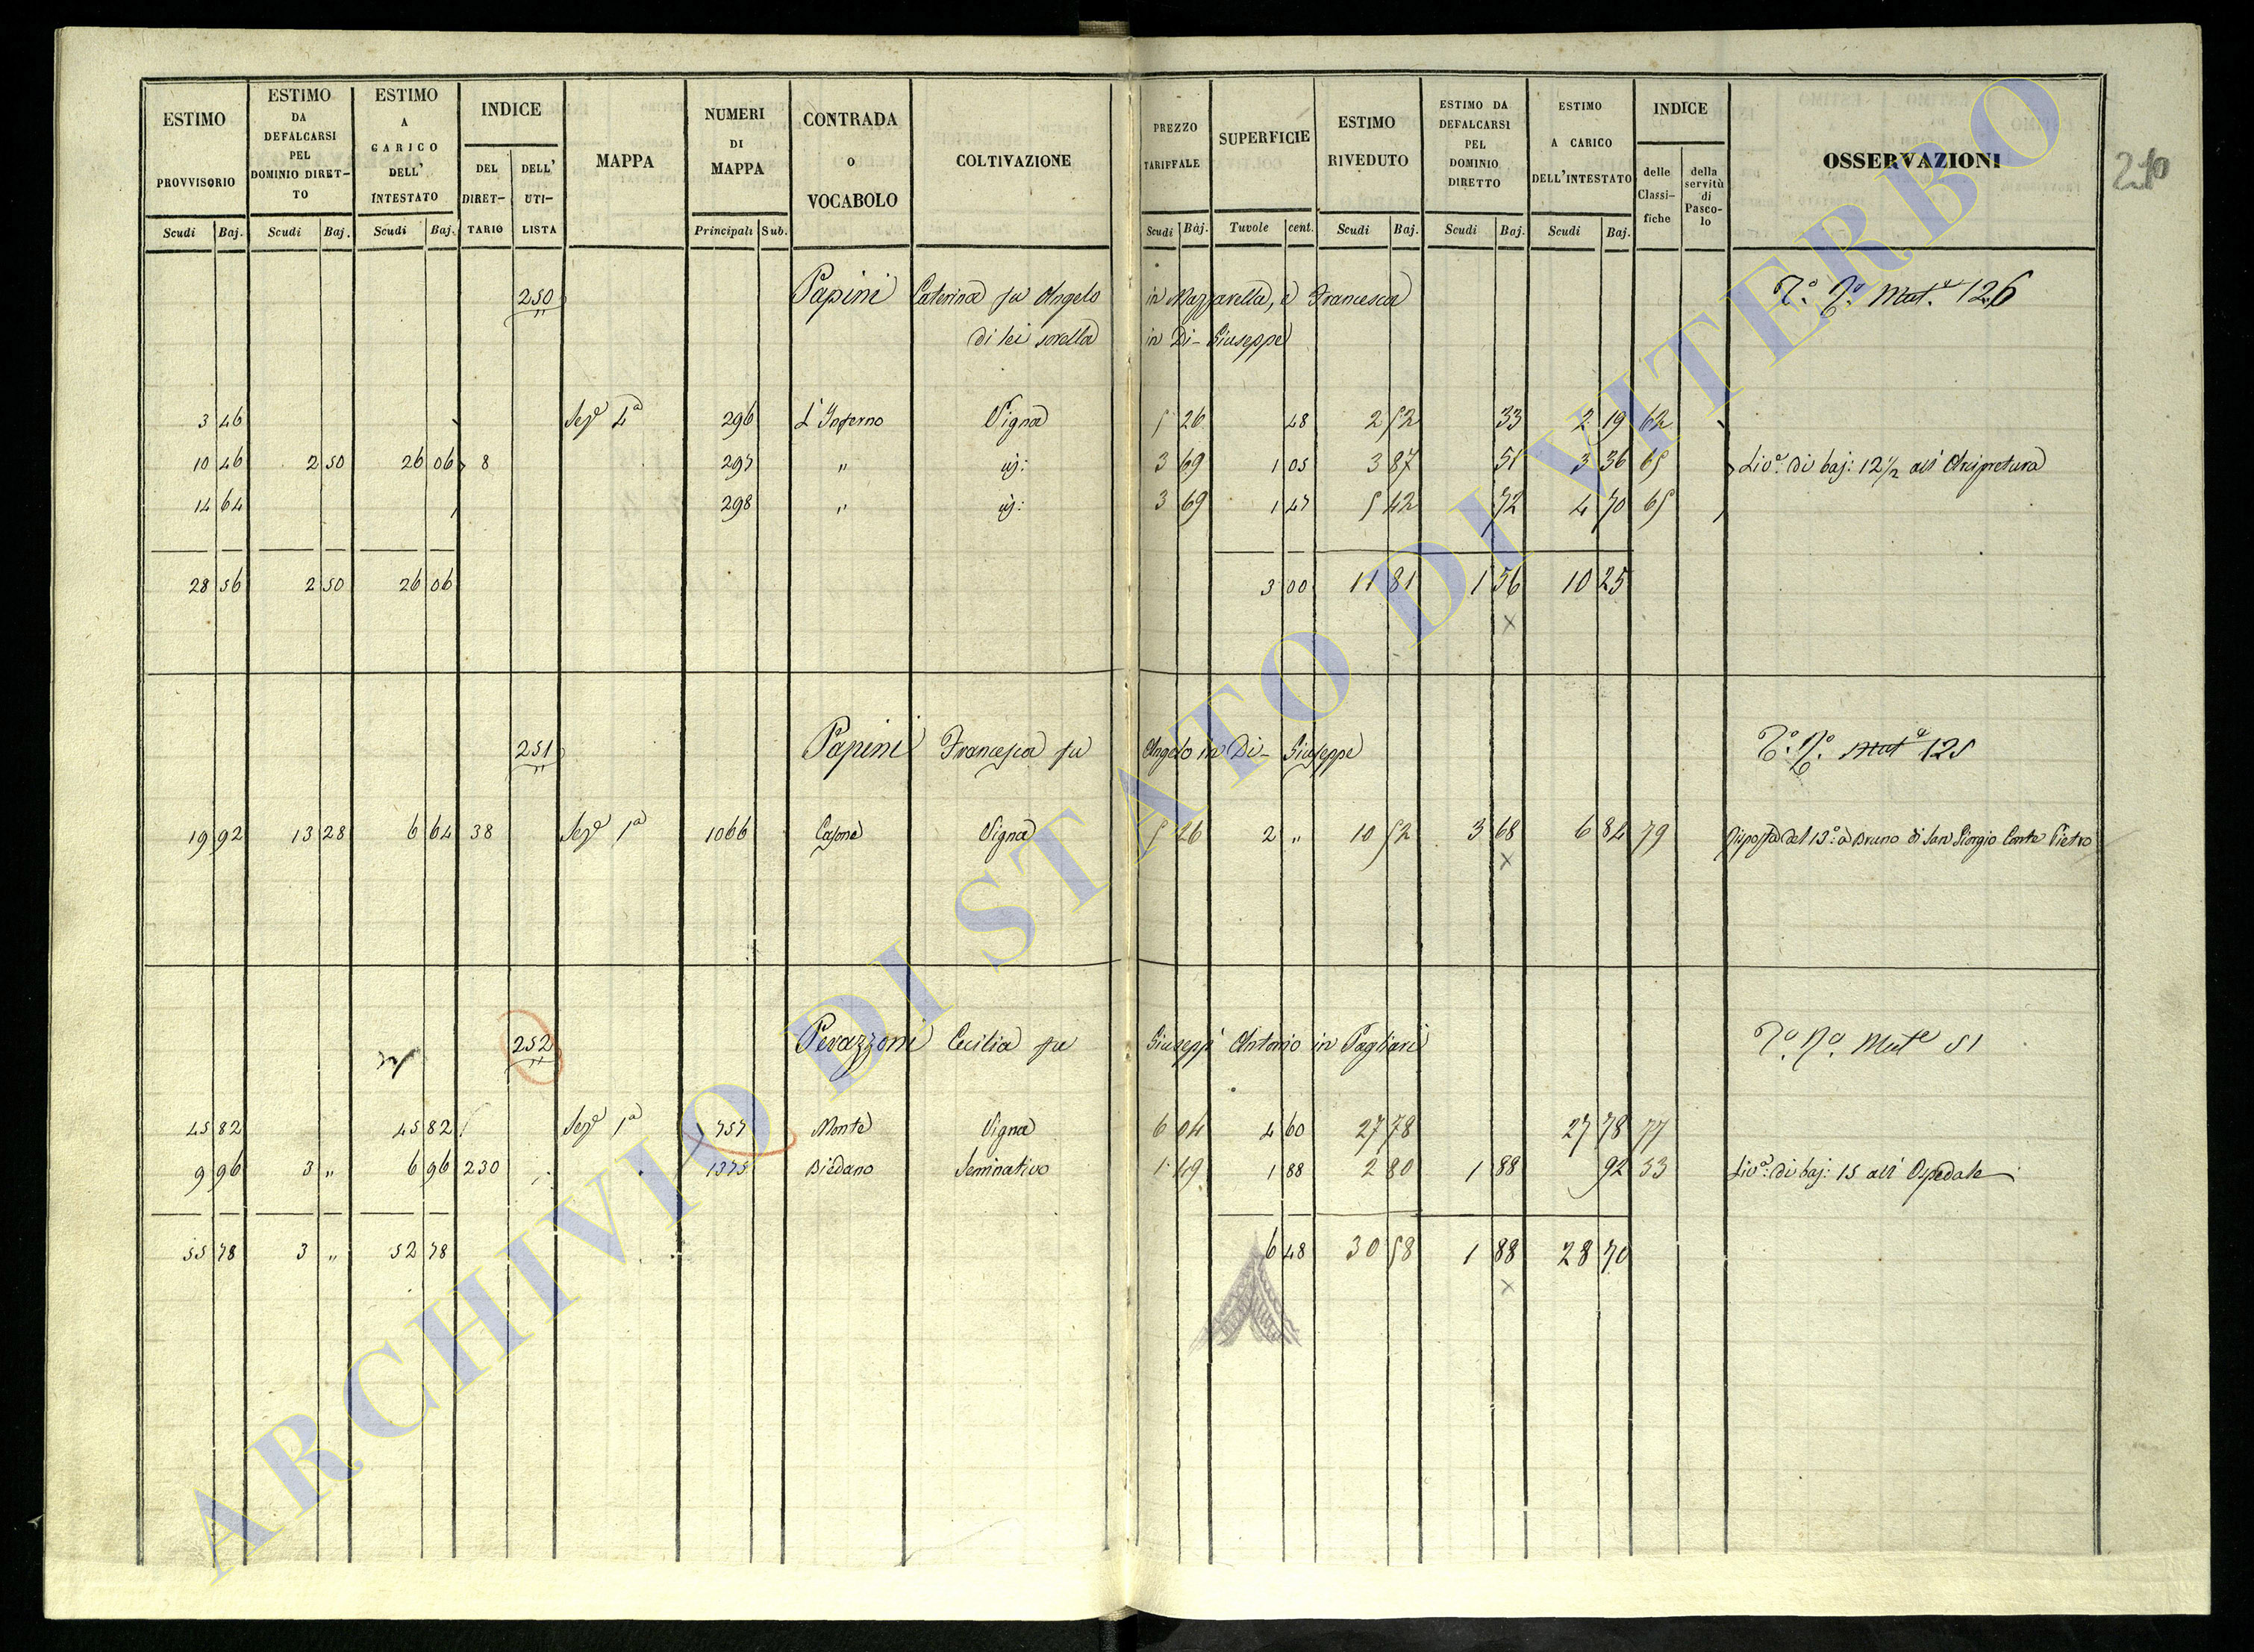 ESTIMO PROVVISORIO | ESTIMO DA DEFALCARSI PEL DOMINIO DIRET-TO | ESTIMO A CARICO DELL' INTESTATO | INDICE DEL DIRET-TARIO | DELL' UTI-LISTA | MAPPA | NUMERI DI MAPPA | CONTRADA O VOCABOLO | COLTIVAZIONE | PREZZO TARIFFALE | SUPERFICIE | ESTIMO RIVEDUTO | ESTIMO DA DEFALCARSI PEL DOMINIO DIRETTO | ESTIMO A CARICO DELL'INTESTATO | INDICE delle Classi-fiche | della servitù di Pasco-lo | OSSERVAZIONI
210
Scudi Baj. Scudi Baj. Scudi Baj. Principali Sub. Scudi Baj. Tavole cent. Scudi Baj. Scudi Baj. Scudi Baj.
250 Papini Caterina fu Angelo in Mazzarella, e Francesca 126
di lei sorella in Di-Giuseppe
3 46 Sezᵉ 4ª 296 L'Inferno Vigna 5 26 48 2 52 33 2 19 62
10 46 2 50 26 06 8 297 " 3 69 1 05 3 87 51 3 36 65 Livº di baj: 12 1/2 all' Arcipretura
14 64 298 " 3 69 1 47 5 42 72 4 70 65
28 56 2 50 26 06 3 00 11 81 1 56 10 25
251 Papini Francesca fu Angelo in Di-Giuseppe 125
19 92 13 28 6 64 38 Sezᵉ 1ª 1066 Vigna 5 26 2 " 10 52 3 68 6 84 79 Risposta del 13º a Bruno di San Giorgio Conte Pietro
252 Perazzoni Cecilia fu Giusepp' Antonio in Pagliari 51
45 82 45 82 Sezᵉ 1ª 757 Monte Vigna 6 04 4 60 27 78 27 78 77
9 96 3 " 6 96 230 1375 Biedano Seminativo 1 49 1 88 2 80 1 88 92 53 Livº: di baj: 15 all' Ospedale
55 78 3 " 52 78 6 48 30 58 1 88 28 70
ARCHIVIO DI STATO DI VITERBO